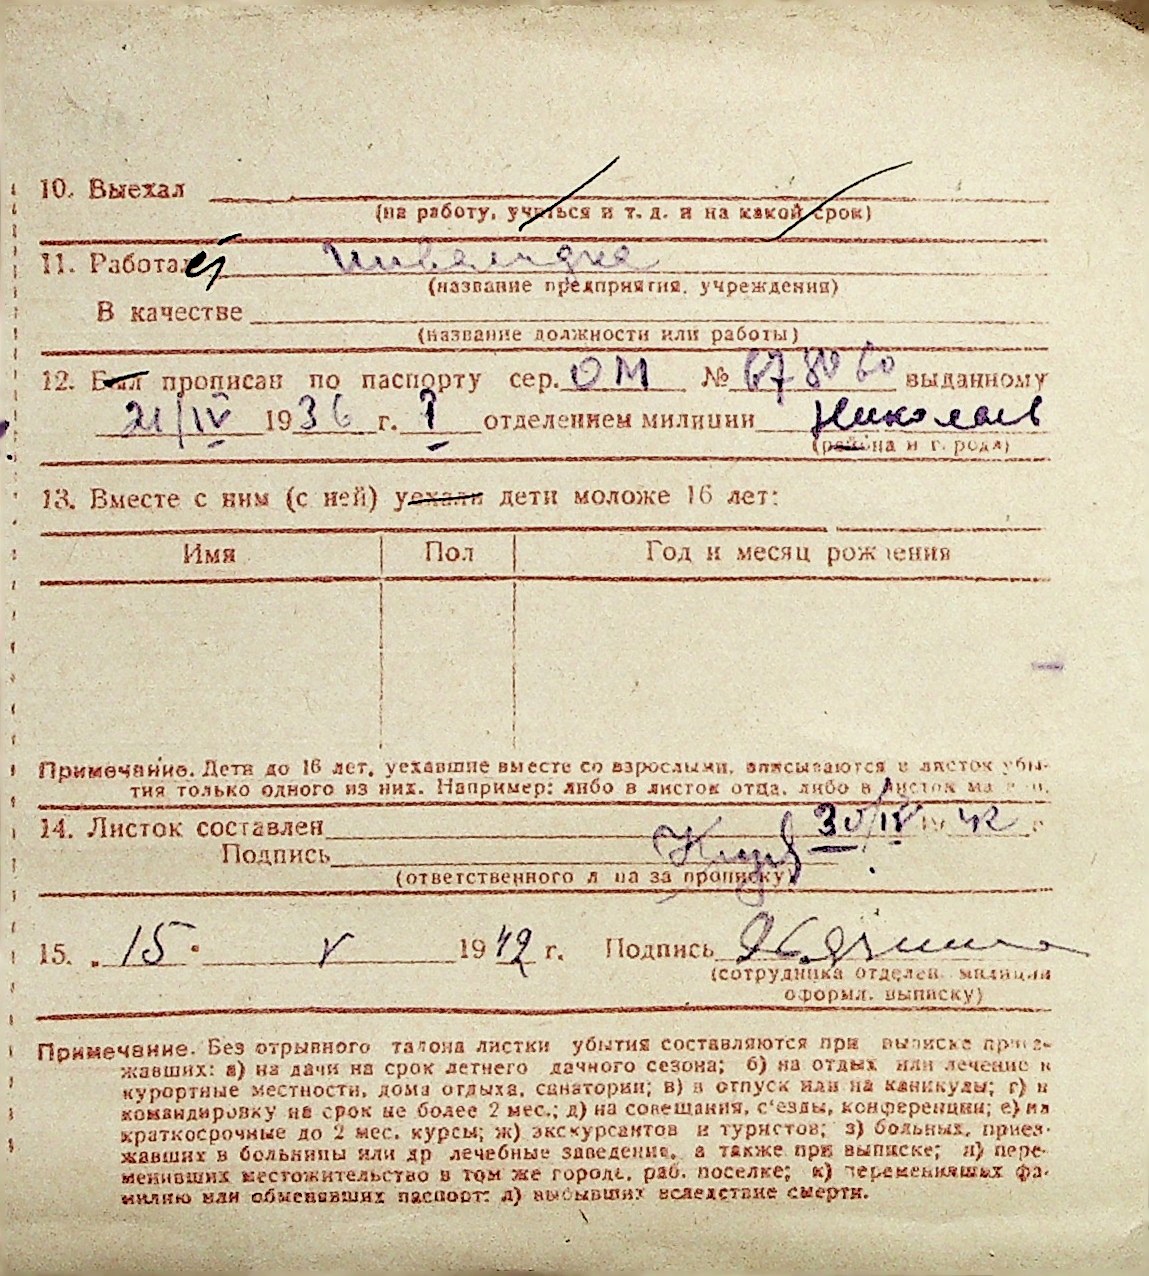 10. Выехал
(на работу, учиться и т. д. и на какой срок)
11. Работал инвалидка
(название предприятия, учреждения)
В качестве
(название должности или работы)
12. Был прописан по паспорту сер. ОМ № 678060 выданному
21/IV 1936 г. I отделением милиции Николаев
(района и города)
13. Вместе с ним (с ней) уехали дети моложе 16 лет:
Имя Пол Год и месяц рождения
Примечание. Дети до 16 лет, уехавшие вместе со взрослыми, вписываются в листок убы-
тия только одного из них. Например: либо в листок отца, либо в листок матери.
14. Листок составлен 30/IV 1942 г.
Подпись
(ответственного лица за прописку)
15. 15 V 1942 г. Подпись
(сотрудника отделен. милиции
оформл. выписку)
Примечание. Без отрывного талона листки убытия составляются при выписке приез-
жавших: а) на дачи на срок летнего дачного сезона; б) на отдых или лечение в
курортные местности, дома отдыха, санатории; в) в отпуск или на каникулы; г) в
командировку на срок не более 2 мес.; д) на совещания, с'езды, конференции; е) на
краткосрочные до 2 мес. курсы; ж) экскурсантов и туристов; з) больных, приез-
жавших в больницы или др лечебные заведение, а также при выписке; и) пере-
менивших местожительство в том же городе, раб. поселке; к) переменивших фа-
милию или обменявших паспорт; л) выбывших вследствие смерти.